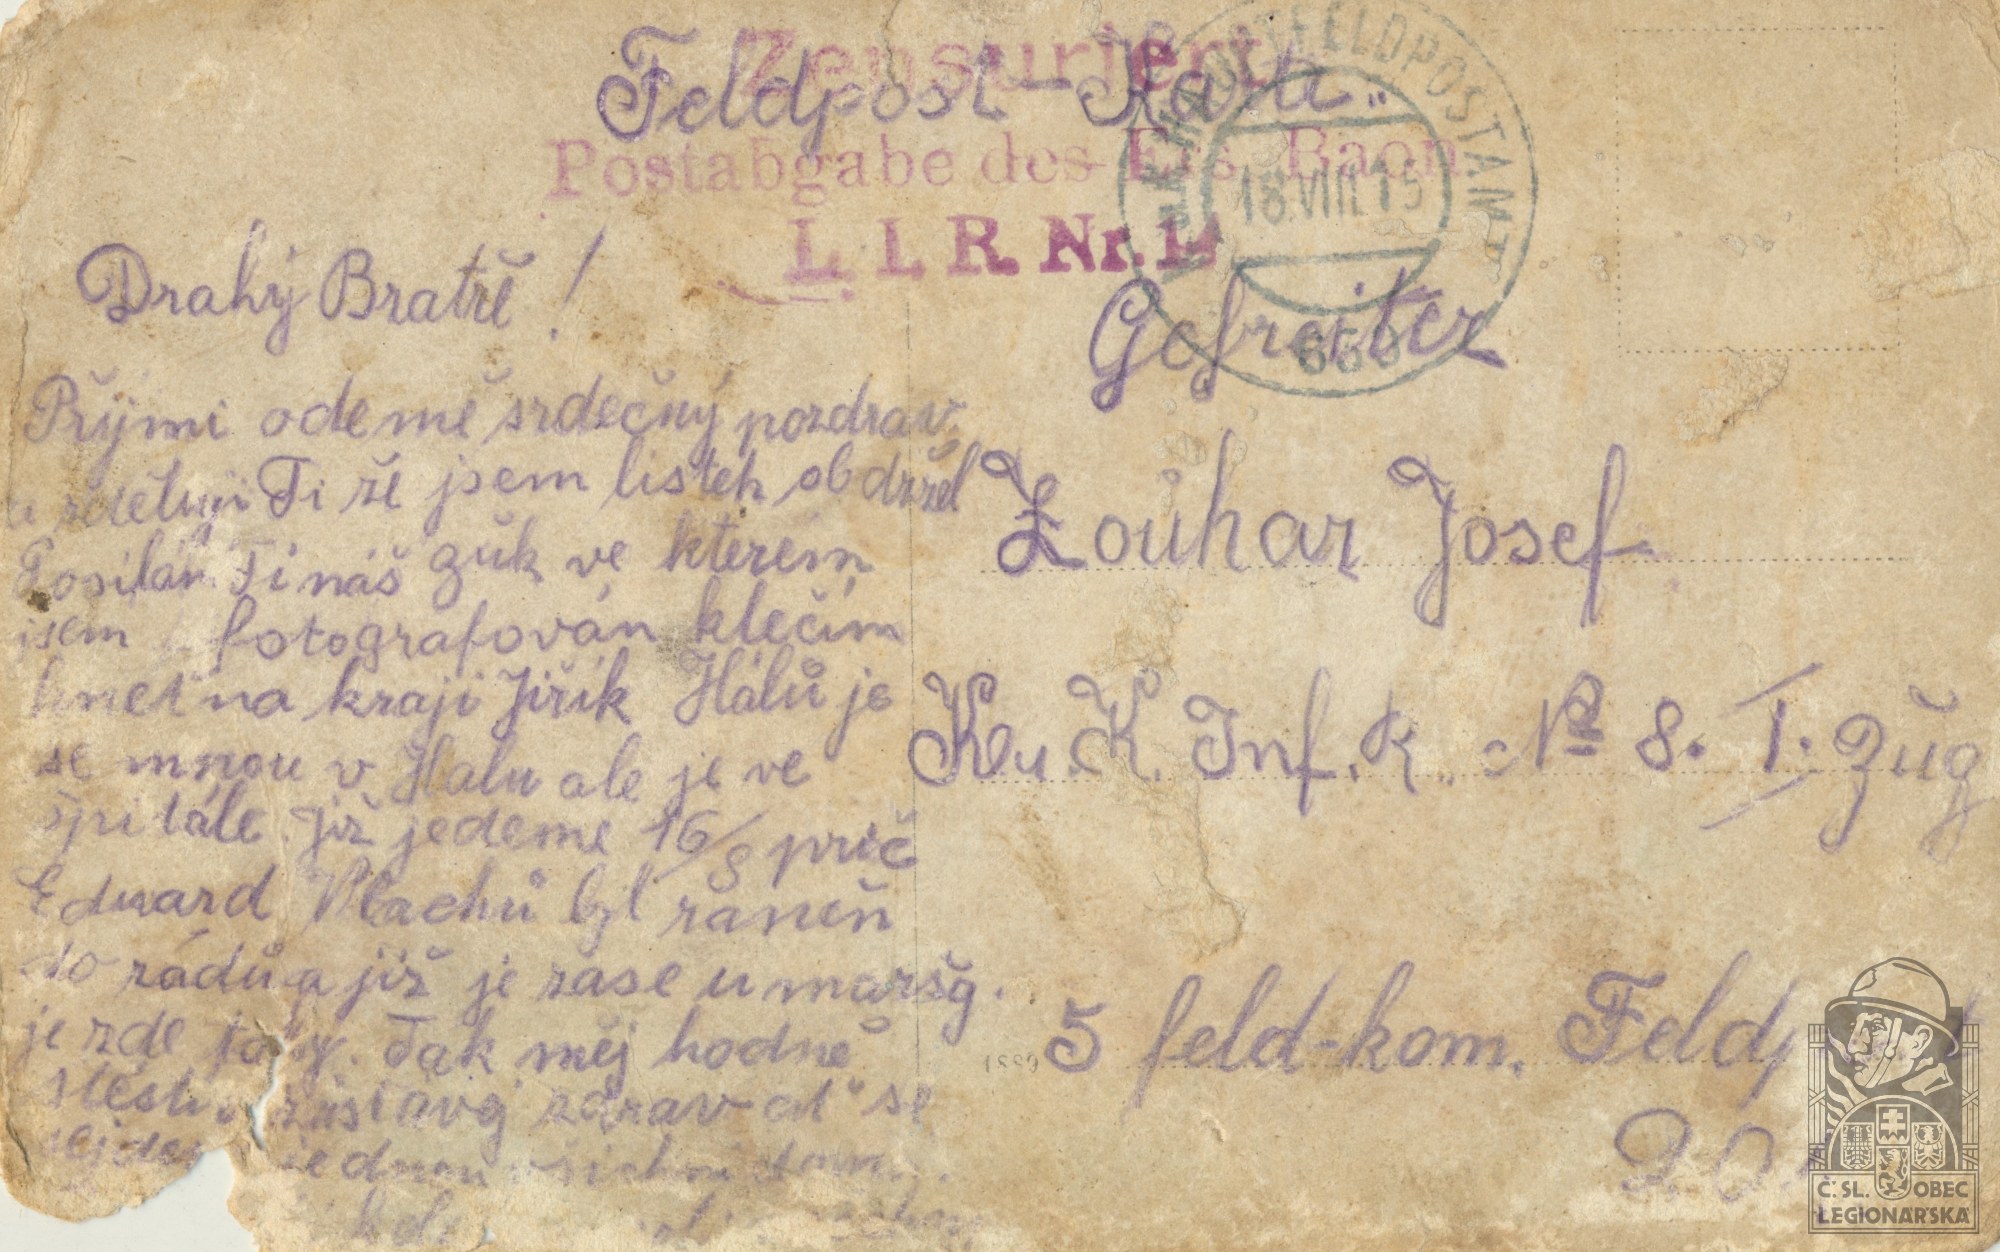 Zensuriert
Feldpost-Karte.
Postabgabe des Ers. Baon
L. I. R. Nr.
K.u.K. HAUPTFELDPOSTAMT
18.VIII.15
Drahý Bratře!
Přými odemě srdečný pozdrav,
a zděluji Ti že jsem listek obdržel
Posilám Ti náš zuk ve kterém
jsem fotografován klečím
hnet na kraji Jiřík Hálů je
se mnou v Halu ale je ve
špitále. Již jedeme 16/8 prič
Eduard Vlachů byl raněn
do zádů a již je zase u maršg.
je zde taky. Tak měj hodně
štěstí zustavg zdrav at' se
sejdem jednou všichni
Gefreiter
Louhar Josef
K. u. K. Inf. R. No 8. I. Zug
5 feld-kom. Feldp
20
Č. SL. OBEC
LEGIONÁŘSKÁ